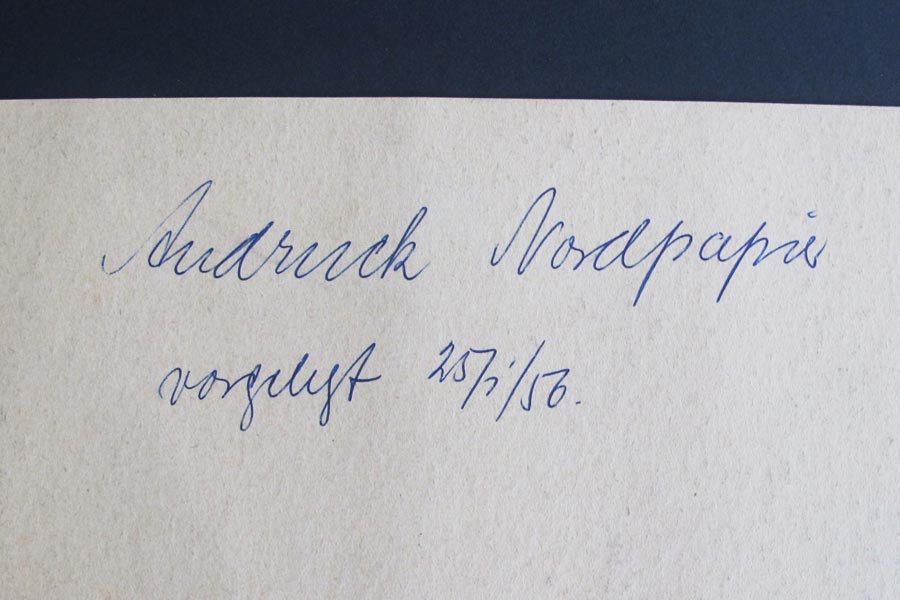 Andruck Nordpapier
vorgelegt 25/i/56.